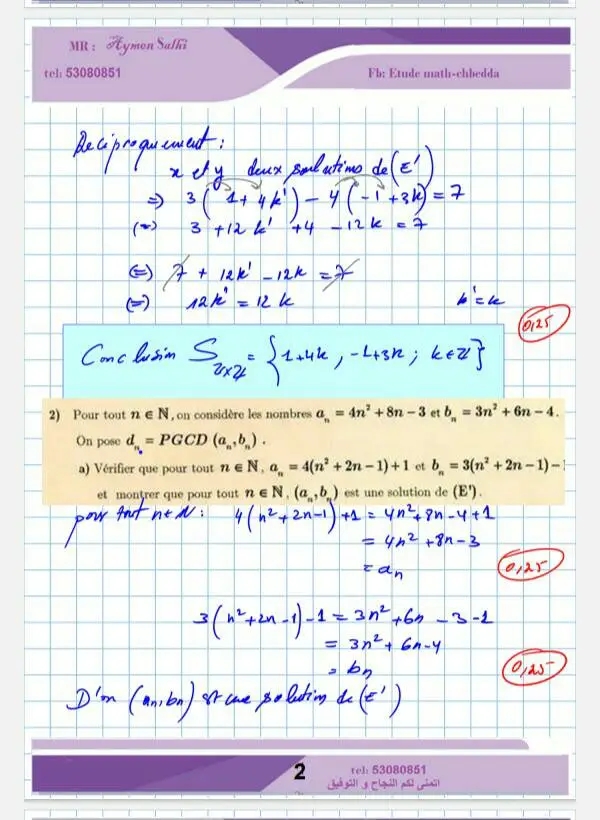 MR : Aymen Salhi
tel: 53080851
Fb: Etude math-chbedda
Réciproquement :
x et y deux solutions de (E')
=> 3(1+4k') - 4(-1+3k) = 7
(=) 3 + 12k' + 4 - 12k = 7
(=) 7 + 12k' - 12k = 7
(=) 12k' = 12k k' = k
0,25
Conclusion S_{ℤ×ℤ} = {1+4k, -1+3k ; k∈ℤ}
2) Pour tout n ∈ ℕ, on considère les nombres aₙ = 4n² + 8n − 3 et bₙ = 3n² + 6n − 4.
On pose dₙ = PGCD (aₙ, bₙ) .
a) Vérifier que pour tout n ∈ ℕ, aₙ = 4(n² + 2n − 1) + 1 et bₙ = 3(n² + 2n − 1) − 1
et montrer que pour tout n ∈ ℕ, (aₙ, bₙ) est une solution de (E').
pour tout n∈ℕ : 4(n²+2n-1)+1 = 4n²+8n-4+1
= 4n²+8n-3
= aₙ
0,25
3(n²+2n-1)-1 = 3n²+6n-3-1
= 3n²+6n-4
= bₙ
0,25
D'où (aₙ, bₙ) est une solution de (E')
2
tel: 53080851
اتمنى لكم النجاح و التوفيق